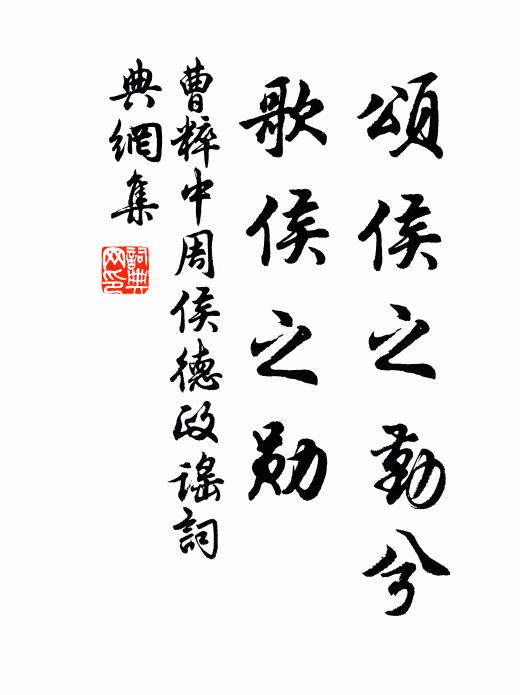 頌侯之勤兮
歌侯之勛
曹粹中周侯德政謡詞
典網集
詞典网印